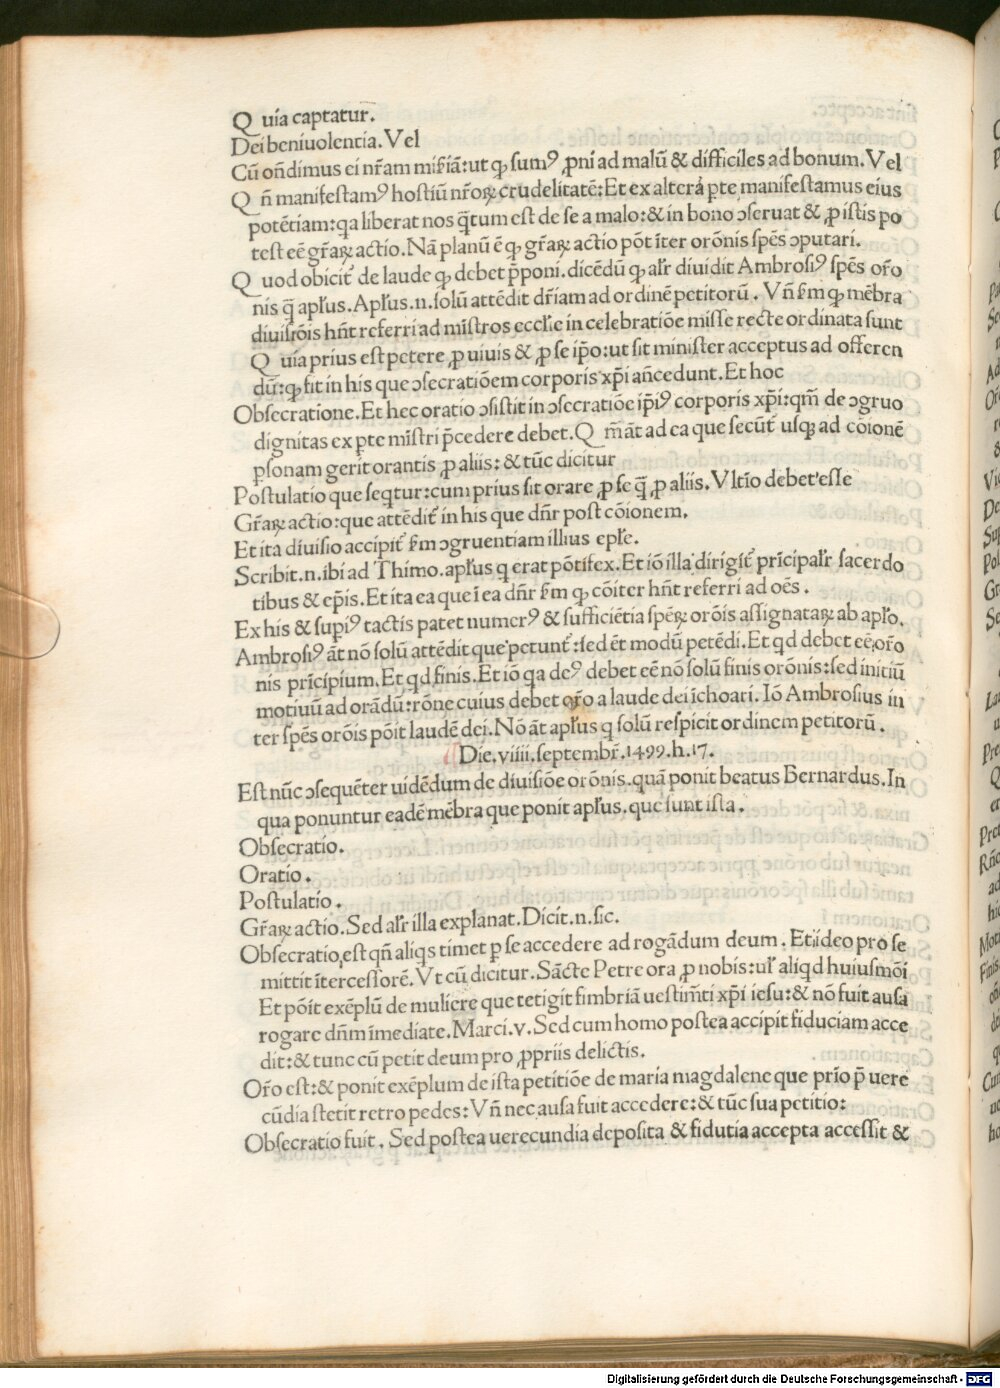 Q uia captatur.
Dei beniuolentia. Vel
Cũ oñdimus ei nr̃am miſ̃iã: ut ꝙ ſumꝰ ꝓni ad malũ & difficiles ad bonum. Vel
Q ñ manifeſtamꝰ hoſtiũ nr̃oꝝ crudelitatẽ: Et ex altera ꝑte manifeſtamus eius
potẽtiam: qa liberat nos q̃tum eſt de ſe a malo: & in bono ↄſeruat & ꝓ iſtis po
teſt eẽ gr̃aꝝ actio. Nã planũ ẽ ꝙ gr̃aꝝ actio põt ĩter orõnis ſpẽs ↄputari.
Q uod obicit̃ de laude ꝙ debet p̃poni. dicẽdũ ꝙ al̃r diuidit Ambroſiꝰ ſpẽs or̃o
nis q̃ apl̃us. Apl̃us .n. ſolũ attẽdit dr̃iam ad ordinẽ petitorũ. Vñ ſ̃m ꝙ mẽbra
diuiſiõis hñt referri ad mĩſtros eccl̃ie in celebratiõe miſſe recte ordinata ſunt
Q uia prius eſt petere ꝓ uiuis & ꝓ ſe ip̃o: ut ſit miniſter acceptus ad offeren
dũ: ꝙ fit in his que ↄſecratiõem corporis xp̃i añcedunt. Et hoc
Obſecratione. Et hec oratio ↄſiſtit in ↄſecratiõe ip̃iꝰ corporis xp̃i: qm̃ de ↄgruo
dignitas ex ꝑte mĩſtri p̃cedere debet. Q m̃ãt ad ea que ſecũt̃ uſqꝫ ad cõionẽ
ꝑſonam gerit orantis ꝓ aliis: & tũc dicitur
Poſtulatio que ſeqtur: cum prius ſit orare ꝓ ſe q̃ ꝓ aliis. Vltĩo debet eſſe
Gr̃aꝝ actio: que attẽdit̃ in his que dñr poſt cõionem.
Et ita diuiſio accipit̃ ſ̃m ↄgruentiam illius epl̃e.
Scribit .n. ibi ad Thimo. apl̃us q erat põtifex. Et iõ illa dirigit̃ prĩcipal̃r ſacerdo
tibus & ep̃is. Et ita ea que ĩ ea dñr ſ̃m ꝙ cõiter hñt referri ad oẽs.
Ex his & ſupiꝰ tactis patet numerꝰ & ſufficiẽtia ſpẽꝝ orõis aſſignataꝝ ab apl̃o.
Ambroſiꝰ ãt nõ ſolũ attẽdit que petunt̃: ſed ẽt modũ petẽdi. Et qd debet eẽ or̃o
nis prĩcipium. Et qd finis. Et iõ qa deꝰ debet eẽ nõ ſolũ finis orõnis: ſed initiũ
motiuũ ad orãdũ: rõne cuius debet or̃o a laude dei ĩchoari. Iõ Ambroſius in
ter ſpẽs orõis põit laudẽ dei. Nõ ãt apl̃us q ſolũ reſpicit ordinem petitorũ.
Die. viiii. ſeptembr̃. 1499. h. 17.
Eſt nũc ↄſequẽter uidẽdum de diuiſiõe orõnis. quã ponit beatus Bernardus. In
qua ponuntur eadẽ mẽbra que ponit apl̃us. que ſunt iſta.
Obſecratio.
Oratio.
Poſtulatio.
Gr̃aꝝ actio. Sed al̃r illa explanat. Dicit .n. ſic.
Obſecratio, eſt qñ aliqs timet ꝑ ſe accedere ad rogãdum deum. Et ideo pro ſe
mittit ĩterceſſorẽ. Vt cũ dicitur. Sãcte Petre ora ꝓ nobis: ul̃ aliqd huiuſmõi
Et põit exẽplũ de muliere que tetigit fimbriã ueſtim̃ti xp̃i ieſu: & nõ fuit auſa
rogare dñm ĩmediate. Marci. v. Sed cum homo poſtea accipit fiduciam acce
dit: & tunc cũ petit deum pro ꝓpriis delictis.
Or̃o eſt: & ponit exẽplum de iſta petitiõe de maria magdalene que prĩo p̃ uere
cũdia ſtetit retro pedes: Vñ nec auſa fuit accedere: & tũc ſua petitio:
Obſecratio fuit. Sed poſtea uerecundia depoſita & fidutia accepta acceſſit &
Digitalisierung gefördert durch die Deutsche Forschungsgemeinschaft - DFG